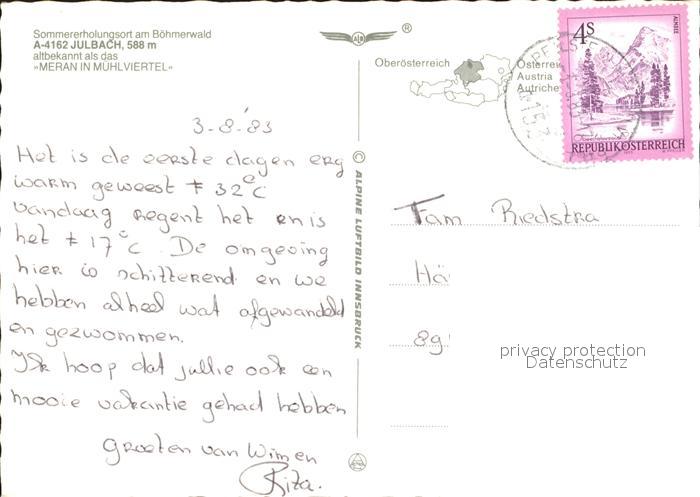 Sommererholungsort am Böhmerwald
A-4162 JULBACH, 588 m
altbekannt als das
»MERAN IN MÜHLVIERTEL«
®
Oberösterreich
Österrei
Austria
Autriche
4s
ALMSEE
REPUBLIK ÖSTERREICH
3-8-'83
Het is de eerste dagen erg
warm geweest ± 32°C
vandaag regent het en is
het ± 17°C. De omgeving
hier is schitterend en we
hebben al heel wat afgewandeld
en gezwommen.
Ik hoop dat jullie ook een
mooie vakantie gehad hebben
Groeten van Wim en
Rita.
© ALPINE LUFTBILD INNSBRUCK
Fam Riedstra
Hä
89
privacy protection
Datenschutz